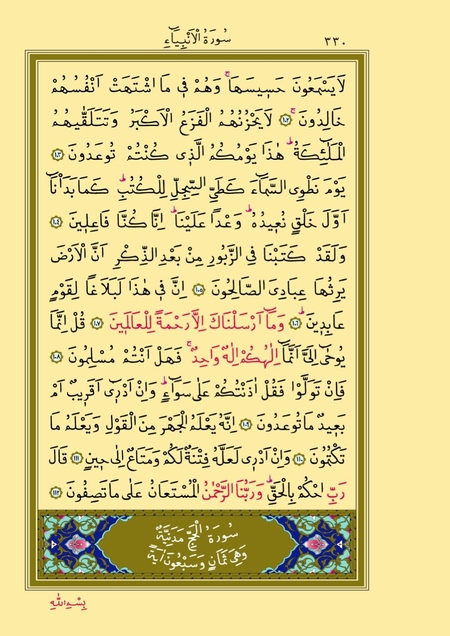 ٣٣٠
سُورَةُ الْاَنْبِيَٓاءِ
لَا يَسْمَعُونَ حَسٖيسَهَاۚ وَهُمْ فٖى مَا اشْتَهَتْ اَنْفُسُهُمْ
خَالِدُونَۚ ﴿١٠٢﴾ لَا يَحْزُنُهُمُ الْفَزَعُ الْاَكْبَرُ وَتَتَلَقّٰيهُمُ
الْمَلٰٓئِكَةُؕ هٰذَا يَوْمُكُمُ الَّذٖى كُنْتُمْ تُوعَدُونَ ﴿١٠٣﴾
يَوْمَ نَطْوِى السَّمَٓاءَ كَطَىِّ السِّجِلِّ لِلْكُتُبِؕ كَمَا بَدَأْنَٓا
اَوَّلَ خَلْقٍ نُعٖيدُهُؕ وَعْدًا عَلَيْنَاؕ اِنَّا كُنَّا فَاعِلٖينَ ﴿١٠٤﴾
وَلَقَدْ كَتَبْنَا فِى الزَّبُورِ مِنْ بَعْدِ الذِّكْرِ اَنَّ الْاَرْضَ
يَرِثُهَا عِبَادِىَ الصَّالِحُونَ ﴿١٠٥﴾ اِنَّ فٖى هٰذَا لَبَلَاغًا لِقَوْمٍ
عَابِدٖينَؕ ﴿١٠٦﴾ وَمَٓا اَرْسَلْنَاكَ اِلَّا رَحْمَةً لِلْعَالَمٖينَ ﴿١٠٧﴾ قُلْ اِنَّمَا
يُوحٰٓى اِلَىَّ اَنَّمَٓا اِلٰهُكُمْ اِلٰهٌ وَاحِدٌۚ فَهَلْ اَنْتُمْ مُسْلِمُونَ ﴿١٠٨﴾
فَاِنْ تَوَلَّوْا فَقُلْ اٰذَنْتُكُمْ عَلٰى سَوَٓاءٍؕ وَاِنْ اَدْرٖٓى اَقَرٖيبٌ اَمْ
بَعٖيدٌ مَا تُوعَدُونَ ﴿١٠٩﴾ اِنَّهُ يَعْلَمُ الْجَهْرَ مِنَ الْقَوْلِ وَيَعْلَمُ مَا
تَكْتُمُونَ ﴿١١٠﴾ وَاِنْ اَدْرٖى لَعَلَّهُ فِتْنَةٌ لَكُمْ وَمَتَاعٌ اِلٰى حٖينٍ ﴿١١١﴾ قَالَ
رَبِّ احْكُمْ بِالْحَقِّؕ وَرَبُّنَا الرَّحْمٰنُ الْمُسْتَعَانُ عَلٰى مَا تَصِفُونَ ﴿١١٢﴾
سُورَةُ الْحَجِّ مَدَنِيَّةٌ
وَهِىَ ثَمَانٍ وَسَبْعُونَ اٰيَةً
بِسْمِ اللّٰهِ